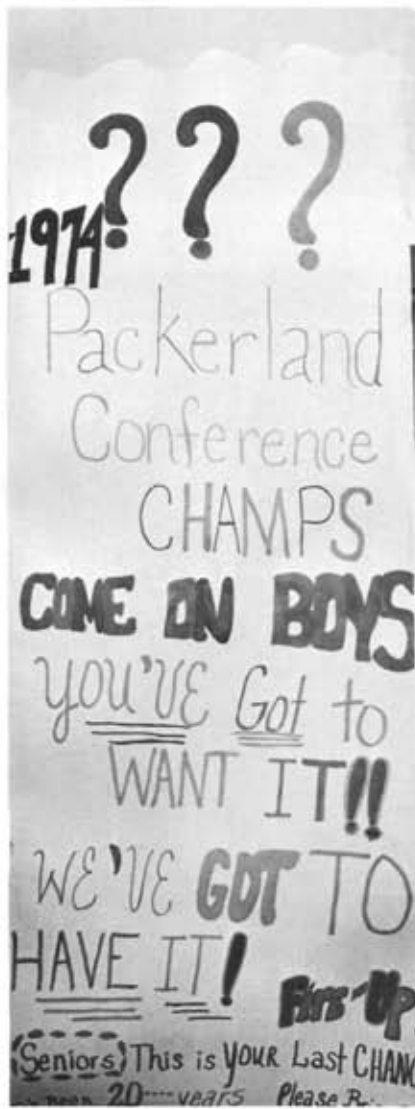 ? ? ?
1974
Packerland
Conference
CHAMPS
COME ON BOYS
YOU'VE Got to
WANT IT!!
WE'VE GOT TO
HAVE IT!
Fire-Up
(Seniors) This is YOUR Last
been 20 years Please